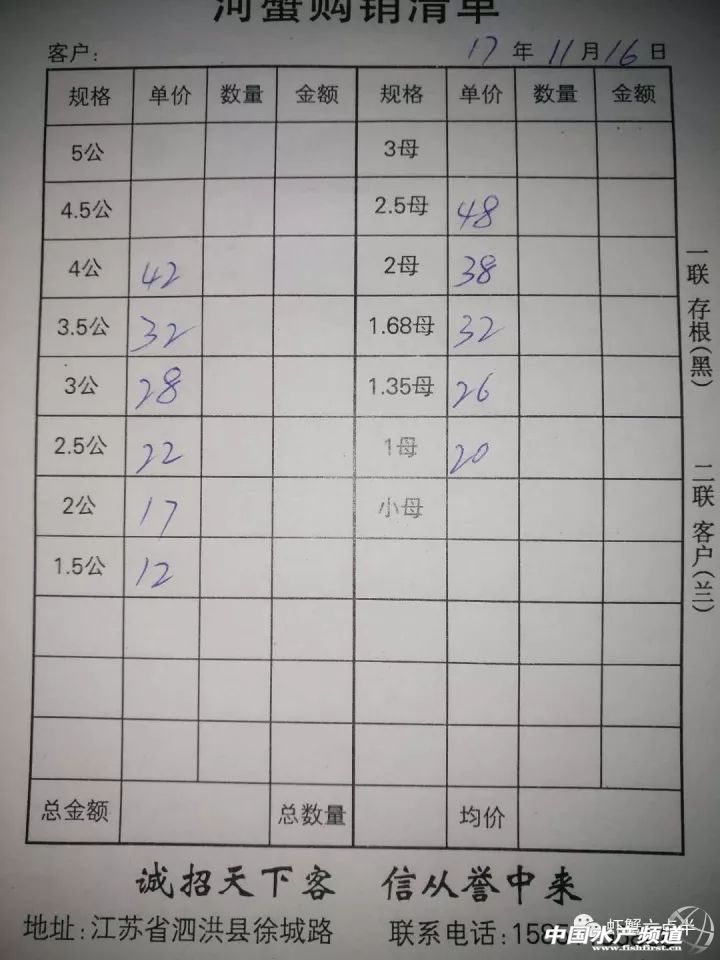 河蟹购销清单
客户: 17年11月16日
规格 单价 数量 金额 规格 单价 数量 金额
5公 3母
4.5公 2.5母 48
4公 42 2母 38
3.5公 32 1.68母 32
3公 28 1.35母 26
2.5公 22 1母 20
2公 17 小母
1.5公 12
总金额 总数量 均价
诚招天下客 信从誉中来
地址:江苏省泗洪县徐城路 联系电话:158
一联 存根(黑)
二联 客户(兰)
虾蟹六点半
中国水产频道
www.fishfirst.cn